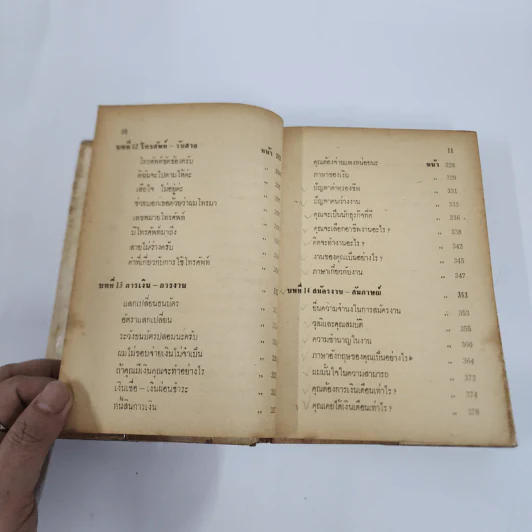 10
บทที่ 12 โทรศัพท์ - รับสาย
หน้า
โทรศัพท์ขัดข้องครับ
ดิฉันจะไปตามให้ค่ะ
เสียใจ ไม่อยู่ค่ะ
ช่วยบอกเธอด้วยว่าผมโทรมา
เลขหมายโทรศัพท์
มีโทรศัพท์มาถึง
สายไม่ว่างครับ
คำที่เกี่ยวกับการใช้โทรศัพท์
บทที่ 13 การเงิน - การงาน
แลกเปลี่ยนธนบัตร
อัตราแลกเปลี่ยน
ระวังธนบัตรปลอมนะครับ
ผมไม่ชอบจ่ายเงินไม่จำเป็น
ถ้าคุณมีเงินคุณจะทำอย่างไร
เงินเชื่อ - เงินผ่อนชำระ
หนี้สินการเงิน
11
หน้า
คุณต้องจ่ายแพงหน่อยนะ 328
ภาษาของเงิน " 329
ปัญหาค่าครองชีพ " 331
ปัญหาคนว่างงาน " 335
คุณจะเป็นนักธุรกิจที่ดี " 336
คุณจะเลือกอาชีพงานอะไร ? " 340
คิดจะทำงานอะไร ? " 342
งานของคุณเป็นอย่างไร ? " 345
ภาษาเกี่ยวกับงาน " 347
บทที่ 14 สมัครงาน - สัมภาษณ์ " 351
ยื่นความจำนงในการสมัครงาน " 353
วุฒิและคุณสมบัติ " 355
ความชำนาญในงาน " 360
ภาษาอังกฤษของคุณเป็นอย่างไร " 364
ผมมั่นใจในความสามารถ " 372
คุณต้องการเงินเดือนเท่าไร ? " 374
คุณเคยได้เงินเดือนเท่าไร ? " 378